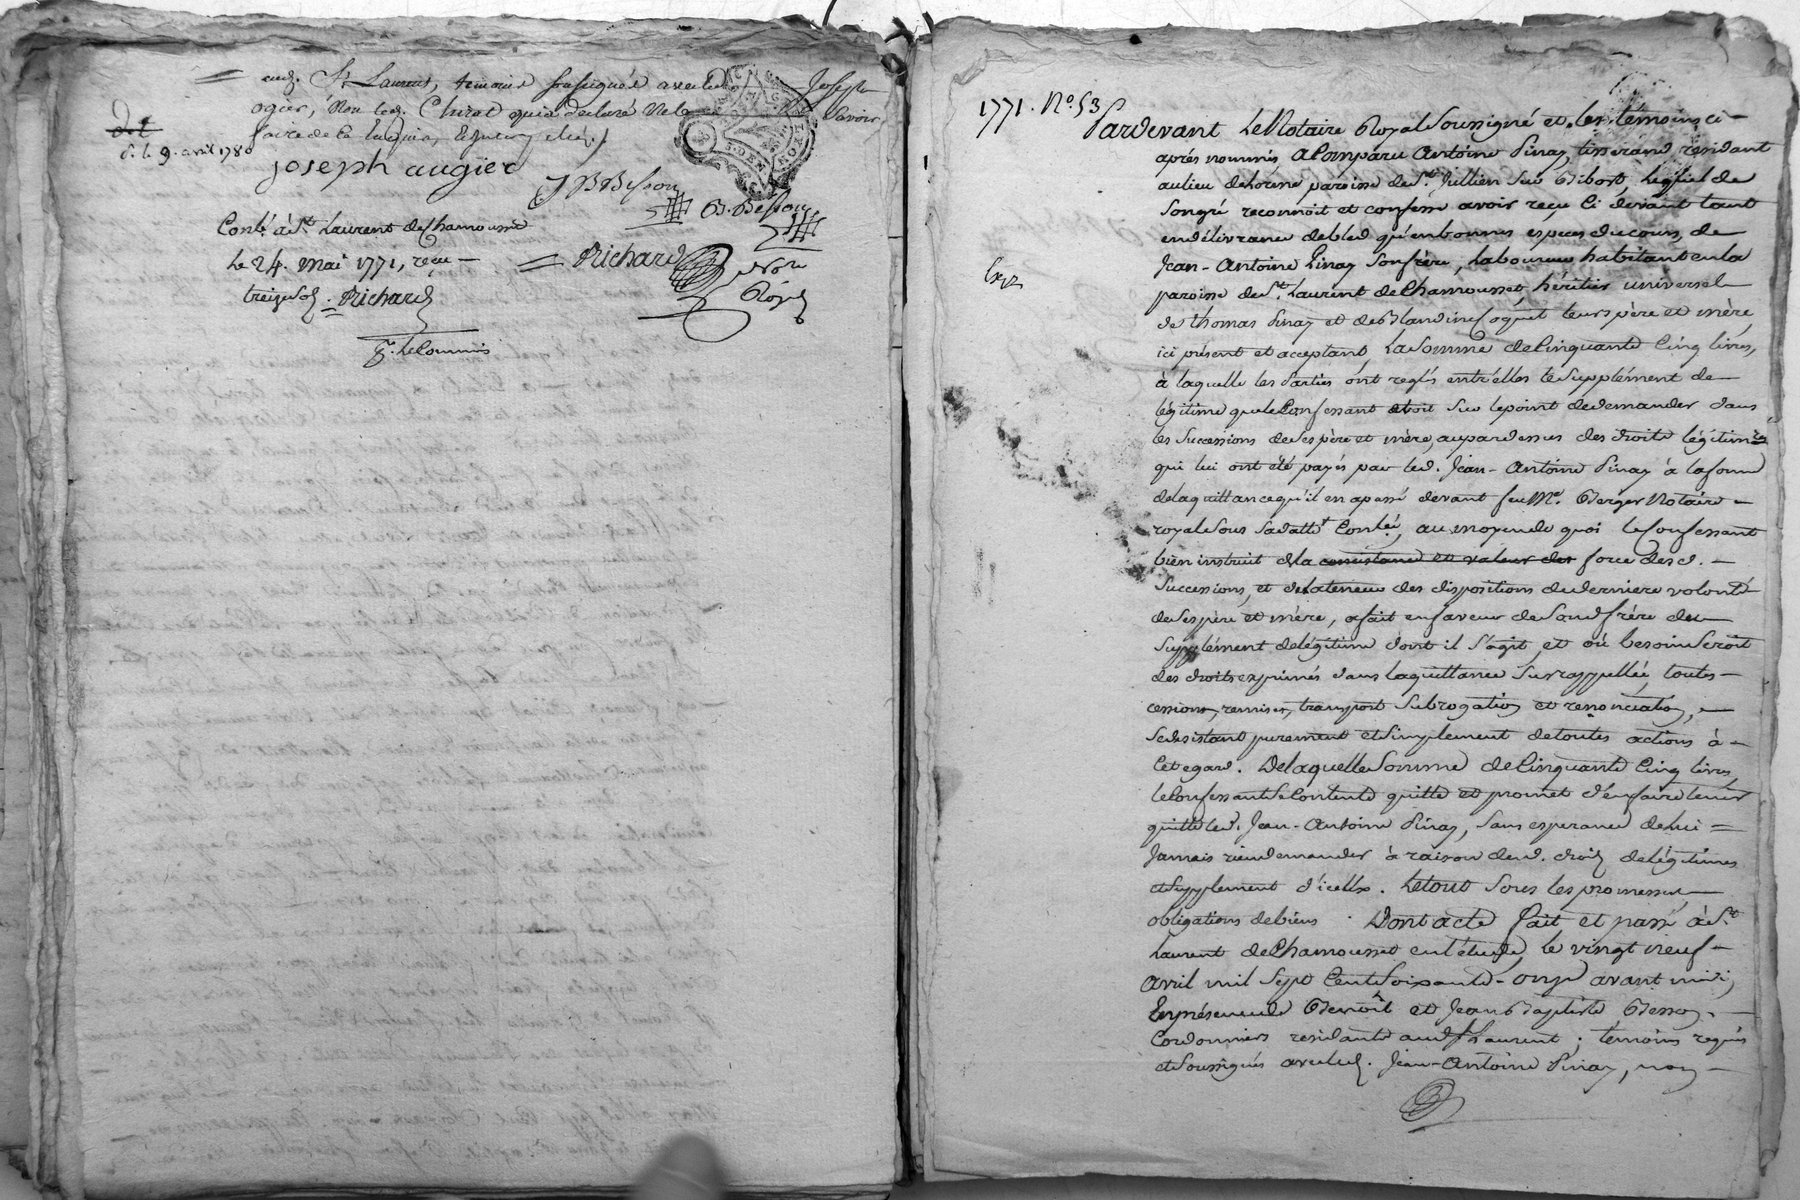 aud. St Laurent, temoins soussignés avec led. Joseph
ogier, Non led. Chirat qui a declaré ne le savoir
faire de ce
d. le 9. avril 1780
joseph augier
JB Besson
B. Besson
Conlé à St Laurent de Chamousset
le 24. mai 1771, reçu
treize sols. Richard
Richard
Notre
Royal
p. le Commis
1771. No. 53
Pardevant Le Notaire Royal Soussigné et les témoins ci-
après nommés a Comparu Antoine Pinay, tisserand résidant
au lieu de par oisse de St. Jullien sur Bibost, lequel de
Son gré reconnoit et confesse avoir reçu Ci devant tant
en délivrance de bled qu'en bonnes especes du cours, de
Jean-Antoine Pinay Son frère, Laboureur habitant en la
paroisse de St. Laurent de Chamousset, héritier universel
de Thomas Pinay et de Blandine Coquet leurs père et mère
ici présent et acceptant, La Somme de Cinquante Cinq livres,
à laquelle les Parties ont reglés entr'elles le Supplément de
légitime que le Confessant étoit Sur le point de demander dans
les Successions de Ses père et mère, au par dessus des droits légitimes
qui lui ont été payés par led. Jean-Antoine Pinay à la forme
de la quittance qu'il en a passé devant feu Me. Berger Notaire
royal Sous Sa datte Conlée, au moyen de quoi le Confessant
bien instruit de la consistance et valeur des force desd.
Successions, et de la teneur des dispositions de derniere volonté
de Ses père et mère, a fait en faveur de Sond frère du
Supplément de légitime dont il S'agit, et où besoin Seroit
des droits exprimés dans la quittance Surrappellée, toutes
cessions, remises, transport Subrogation et renonciation,
se desistant purement et Simplement de toutes actions à
Cet egard. De laquelle Somme de Cinquante Cinq livres,
le Confessant Se Contente quitte et promet d'en faire tenir
quitte led. Jean-Antoine Pinay, Sans esperance de lui
Jamais rien demander à raison desd. droits de légitimes
et Supplement d'icelles. Le tout Sous les promesses
obligations de biens. Dont acte fait et passé à St.
Laurent de Chamousset en l'étude, le vingt neuf
avril mil Sept Cent Soixante-onze avant midi,
En présence de Benoît et Jean Baptiste Besson
Cordonniers residants aud St Laurent; témoins requis
et Soussignés avec led. Jean-Antoine Pinay, non